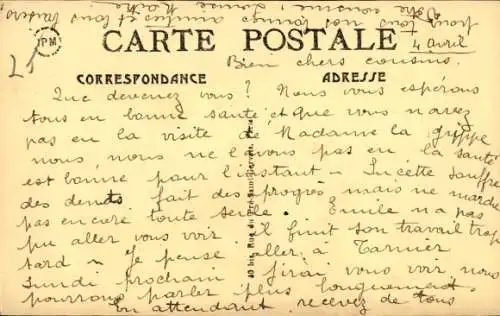 pour tous nos bonnes amitiés et bons baisers
Votre cousine Louise
CARTE POSTALE
PM
25
4 avril
Bien chers cousins.
CORRESPONDANCE
ADRESSE
Que devenez vous ? Nous vous espérons
tous en bonne santé et que vous n avez
pas eu la visite de Madame la grippe
nous, nous ne l avons pas eu la santé
est bonne pour l instant - Lucette souffre
des dents fait des progrès mais ne marche
pas encore toute seule. Emile n a pas
pu aller vous voir il finit son travail trop
tard - Je pense aller à Tarnier
Lundi prochain j irai vous voir, nous
pourrons parler plus longuement.
En attendant recevez de tous